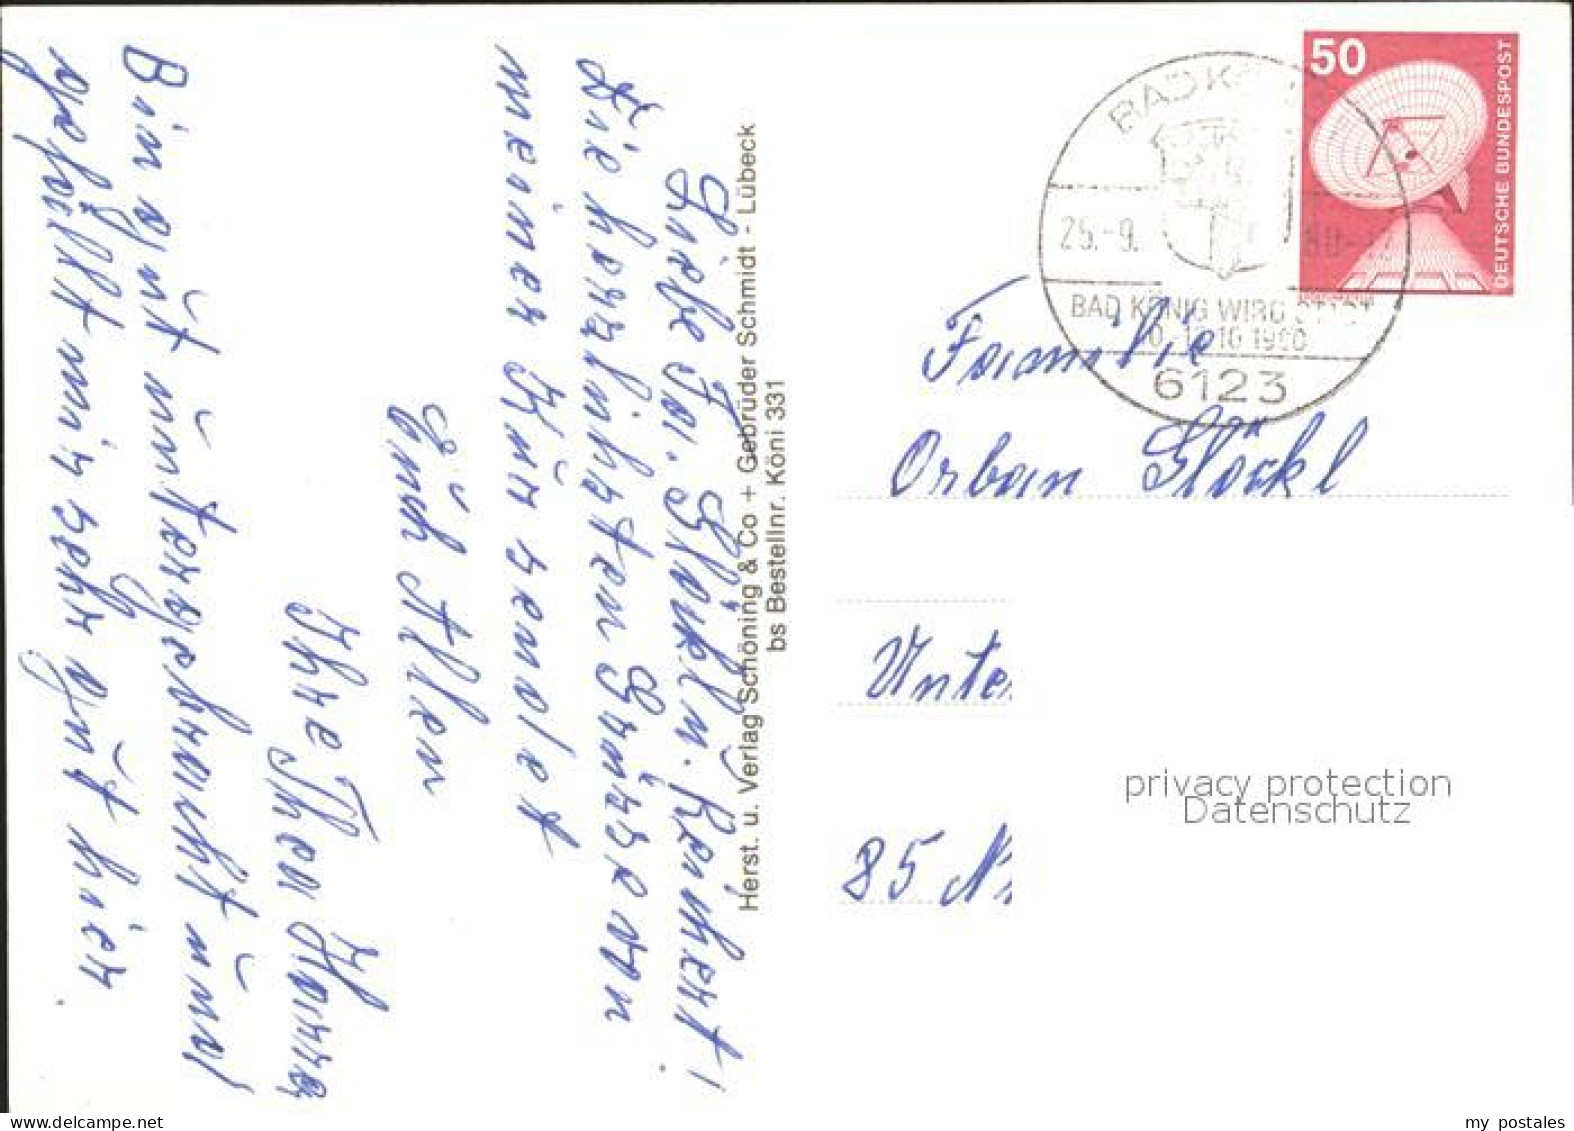 Liebe Fa. Glöckl u. Reichert!
Die herzlichsten Grüsse von
meiner Kur sendet
Euch Allen
Ihre Thea
Bin gut untergebracht und
gefällt mir sehr gut hier.
Herst. u. Verlag Schöning & Co + Gebrüder Schmidt - Lübeck
bs Bestellnr. Köni 331
50
DEUTSCHE BUNDESPOST
BAD KÖ
25.-9.
BAD KÖNIG WIRD STADT
6123
Familie
Orban Glöckl
Unte
85 N
privacy protection
Datenschutz
my postales